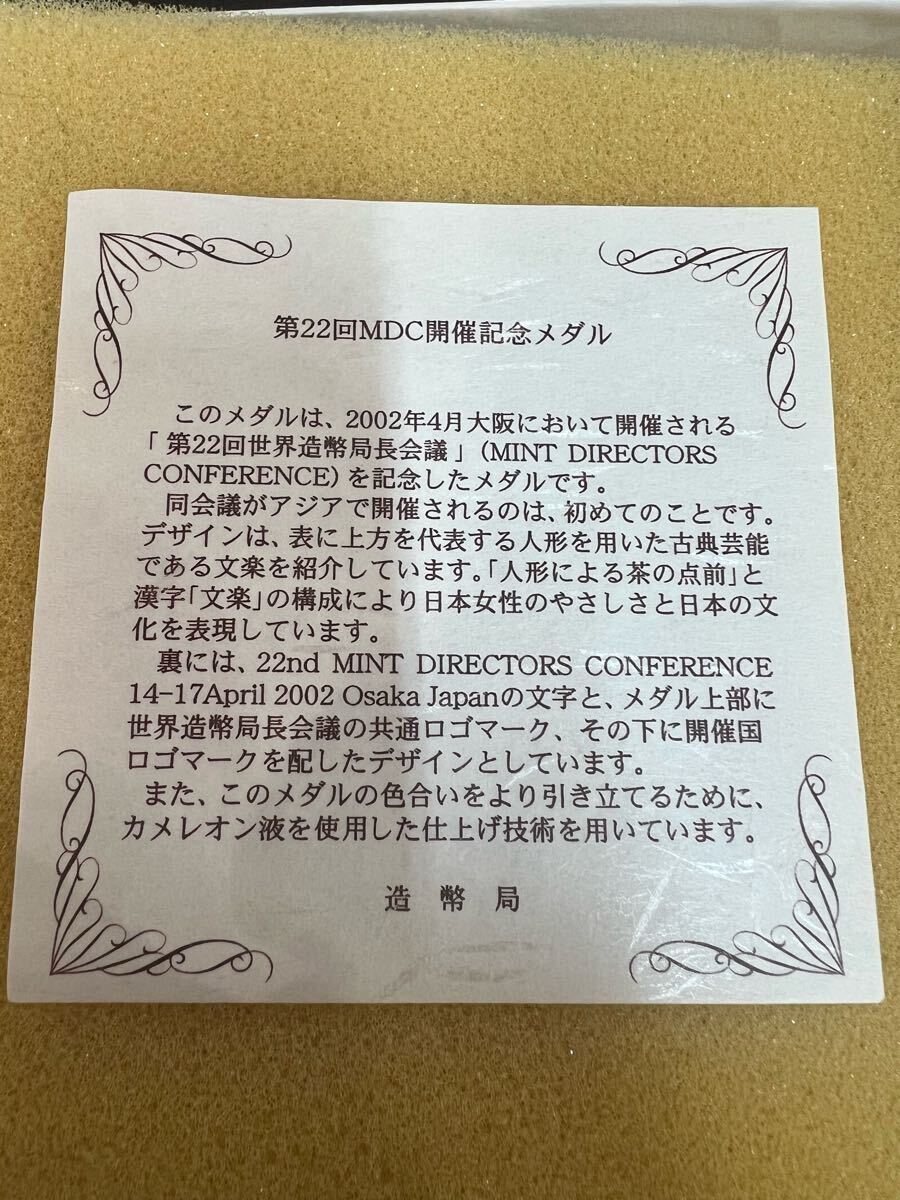 第22回MDC開催記念メダル
このメダルは、2002年4月大阪において開催される
「第22回世界造幣局長会議」(MINT DIRECTORS
CONFERENCE)を記念したメダルです。
同会議がアジアで開催されるのは、初めてのことです。
デザインは、表に上方を代表する人形を用いた古典芸能
である文楽を紹介しています。「人形による茶の点前」と
漢字「文楽」の構成により日本女性のやさしさと日本の文
化を表現しています。
裏には、22nd MINT DIRECTORS CONFERENCE
14-17April 2002 Osaka Japanの文字と、メダル上部に
世界造幣局長会議の共通ロゴマーク、その下に開催国
ロゴマークを配したデザインとしています。
また、このメダルの色合いをより引き立てるために、
カメレオン液を使用した仕上げ技術を用いています。
造幣局